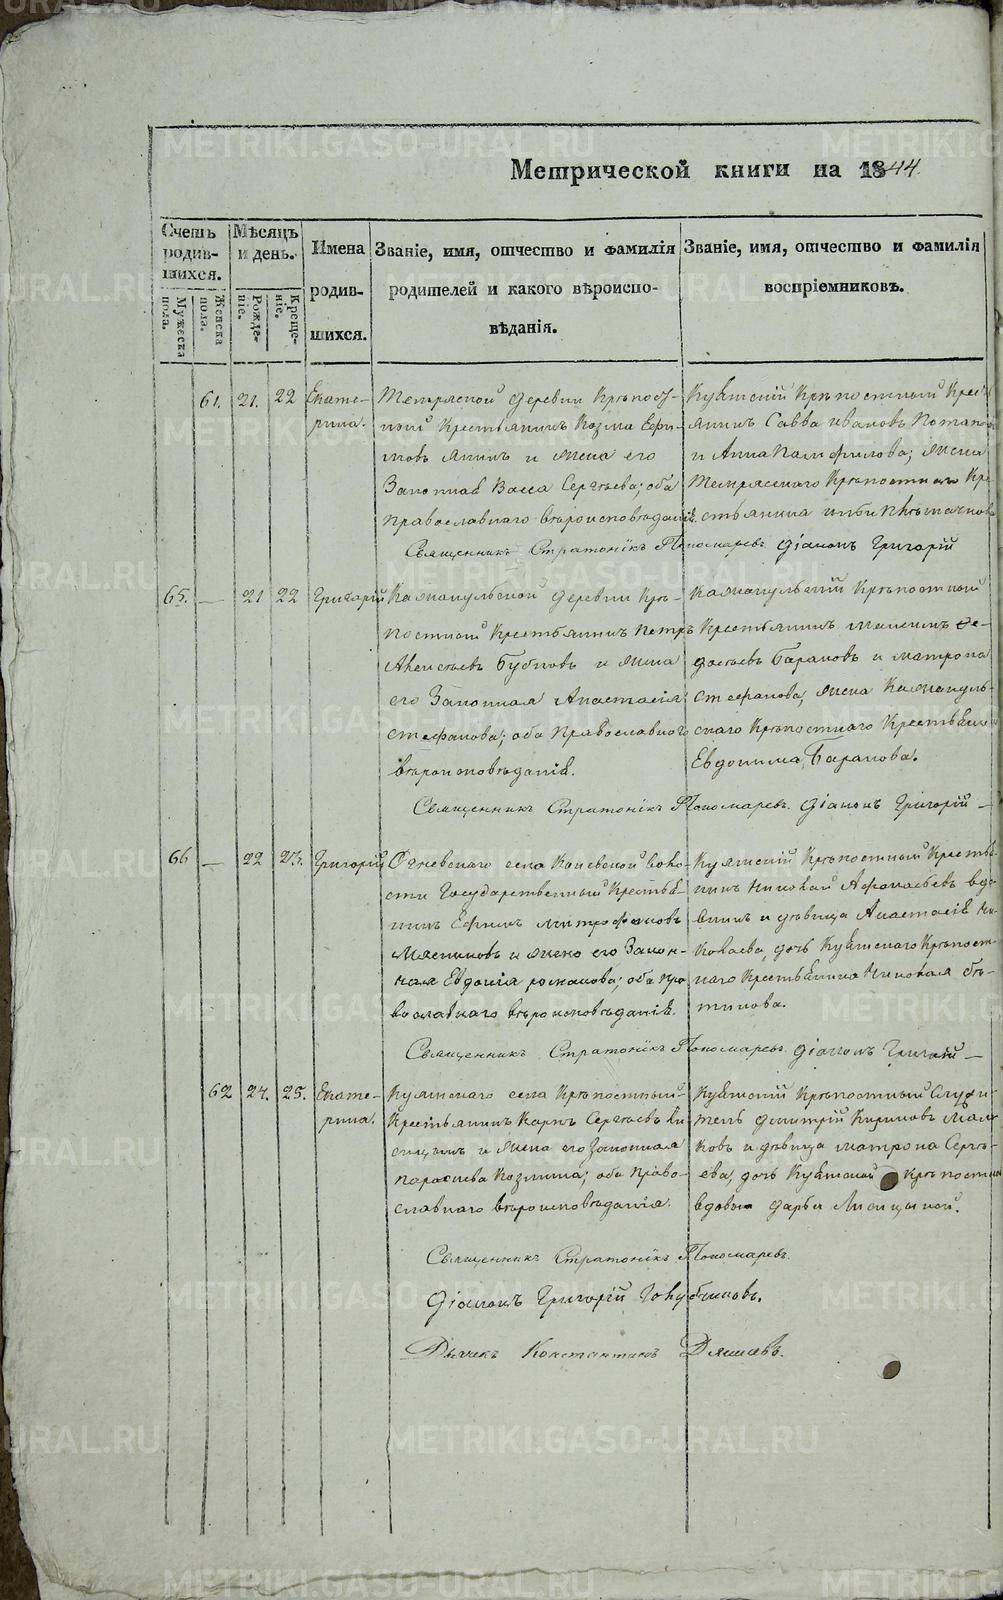 Метрической книги на 1844.
Счетъ родив-шихся.
Мужеска пола.
Женска пола.
Мѣсяцъ и день.
Рожде-ніе.
Креще-ніе.
Имена
родив-
шихся.
Званіе, имя, отчество и фамилія
родителей и какого вѣроиспо-
вѣданія.
Званіе, имя, отчество и фамилія
воспріемниковъ.
61. 21. 22 Екате-
рина.
деревни Крѣпост-
ной Крестьянинъ Козма Ефи-
мовъ и жена его
Законная Васса Сергѣева; оба
православнаго вѣроисповѣданія.
Крѣпостный Крес
янинъ Савва Ивановъ
и Анна Памфилова; жена
Крѣпостнаго Кре
стьянина
Священникъ Стратоникъ Пономаревъ. Діаконъ Григорій
65. — 21 22 Григорій
деревни Крѣ-
постный Крестьянинъ Петръ
Бубновъ и жена
его Законная Анастасія
Стефанова; оба православнаго
вѣроисповѣданія.
Крѣпостный
Крестьянинъ Максимъ Ѳе-
досѣевъ Барановъ и Матрона
Стефанова, жена
скаго Крѣпостнаго Крестьян
Евдокима Баранова.
Священникъ Стратоникъ Пономаревъ. Діаконъ Григорій —
66 — 22 23. Григорій
Огневскаго села воло-
сти Государственный Крестья-
нинъ Ефимъ Митрофановъ
Мясниковъ и жена его Закон-
ная Евдокія Романова; оба пра
вославнаго вѣроисповѣданія.
Крѣпостный Крестья
нинъ Николай
и дѣвица Анастасія Ни-
колаева, дочь Крѣпост-
наго Крестьянина Николая
Священникъ Стратоникъ Пономаревъ. Діаконъ Григорій —
62 24. 25. Екате-
рина.
села Крѣпостный
Крестьянинъ Карпъ Сергѣевъ Ли
сицынъ и жена его Законная
Козмина; оба право-
славнаго вѣроисповѣданія.
Крѣпостный Служи-
тель Димитрій
ковъ и дѣвица Матрона Сергѣ-
ева, дочь Крѣпостн
вдовы Дарьи Лисицыной.
Священникъ Стратоникъ Пономаревъ.
Діаконъ Григорій Голубчиковъ.
Дьячекъ Константинъ
METRIKI.GASO-URAL.RU